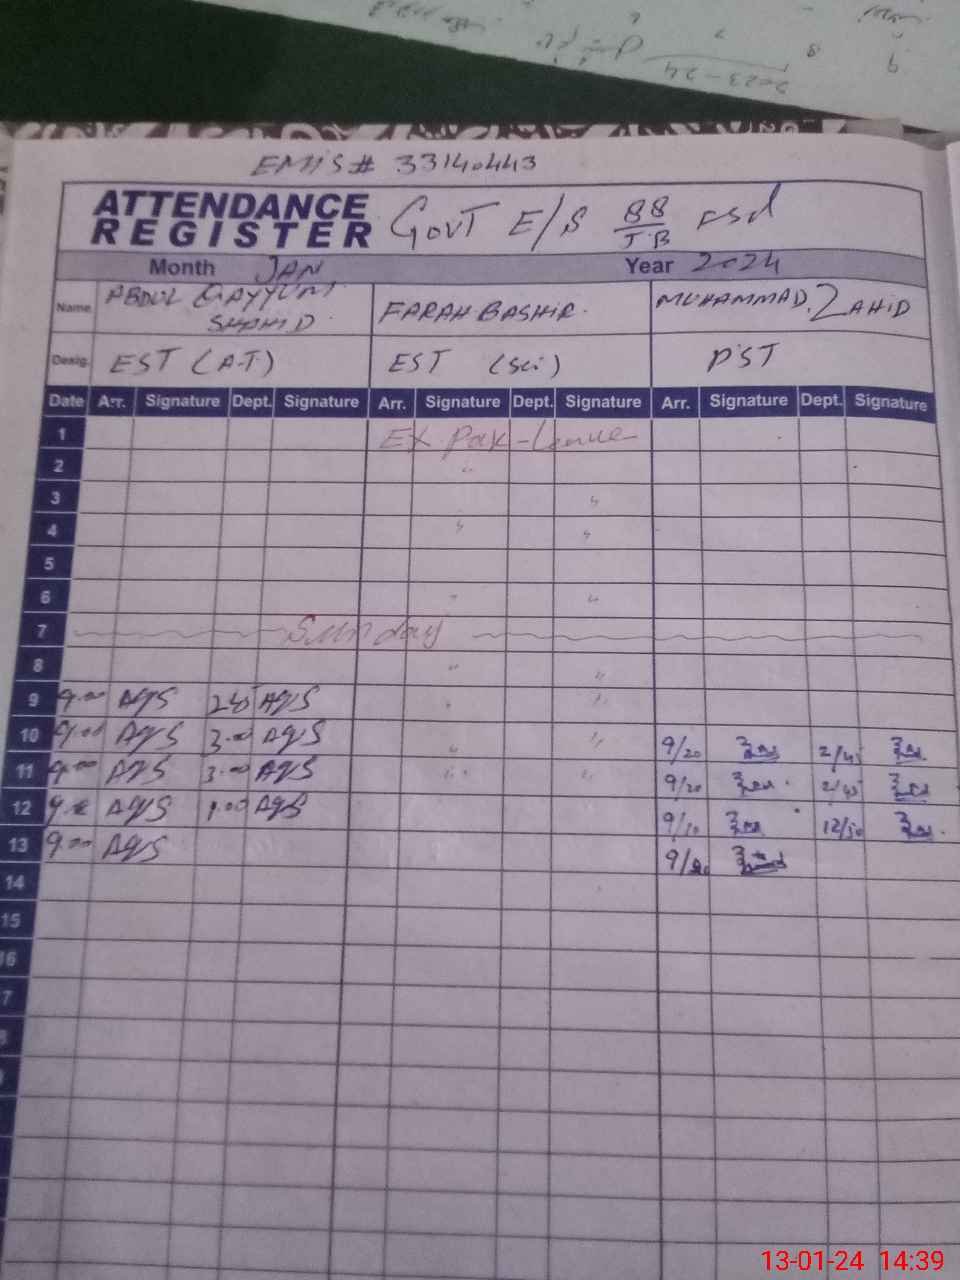 2023-24
EMIS# 33140443
ATTENDANCE
REGISTER
GOVT E/S 88/JB FSd
Month JAN Year 2024
Name ABDUL QAYYUM SHAHID FARAH BASHIR. MUHAMMAD ZAHID
Desig. EST (A.T) EST (Sci) PST
Date Arr. Signature Dept. Signature Arr. Signature Dept. Signature Arr. Signature Dept. Signature
1 EX Pak-Leave
2 "
3 "
4 " "
5
6 " "
7 Sunday
8 " "
9 9.00 AQS AQS " "
10 9.00 AQS 3.00 AQS " " 9/20 2/45
11 9.00 AQS 3.00 AQS " " 9/20 2/45
12 AQS 1.00 AQS 9/10 12/30
13 9.00 AQS
14
15
16
7
8
13-01-24 14:39